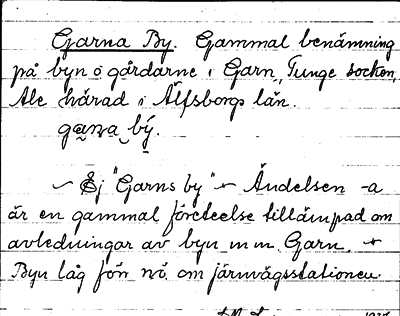 Garna By. Gammal benämning
på byn o gårdarne i Garn, Tunge socken,
Ale härad i Älfsborgs län.
gaṉa bý.
Ej "Garns by" Ändelsen -a
är en gammal företeelse tillämpad om
avledningar av byn m m Garn.
Byn låg förr nö. om järnvägsstationen